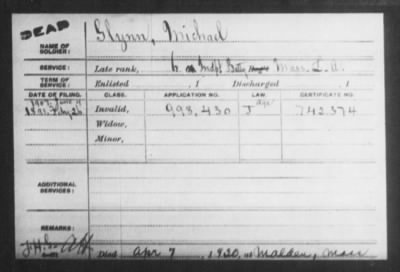 DEAD
Glynn, Michael
NAME OF SOLDIER:
SERVICE: Late rank, 6 Indpt Batty Mass L. A.
TERM OF SERVICE: Enlisted , 1 Discharged , 1
DATE OF FILING. CLASS. APPLICATION NO. LAW. CERTIFICATE NO.
1907 June 4 Age
1891 Feby 26 Invalid, 998,430 J 742,374
Widow,
Minor,
ADDITIONAL SERVICES:
REMARKS:
Died Apr 7, 1920, at Malden, Mass